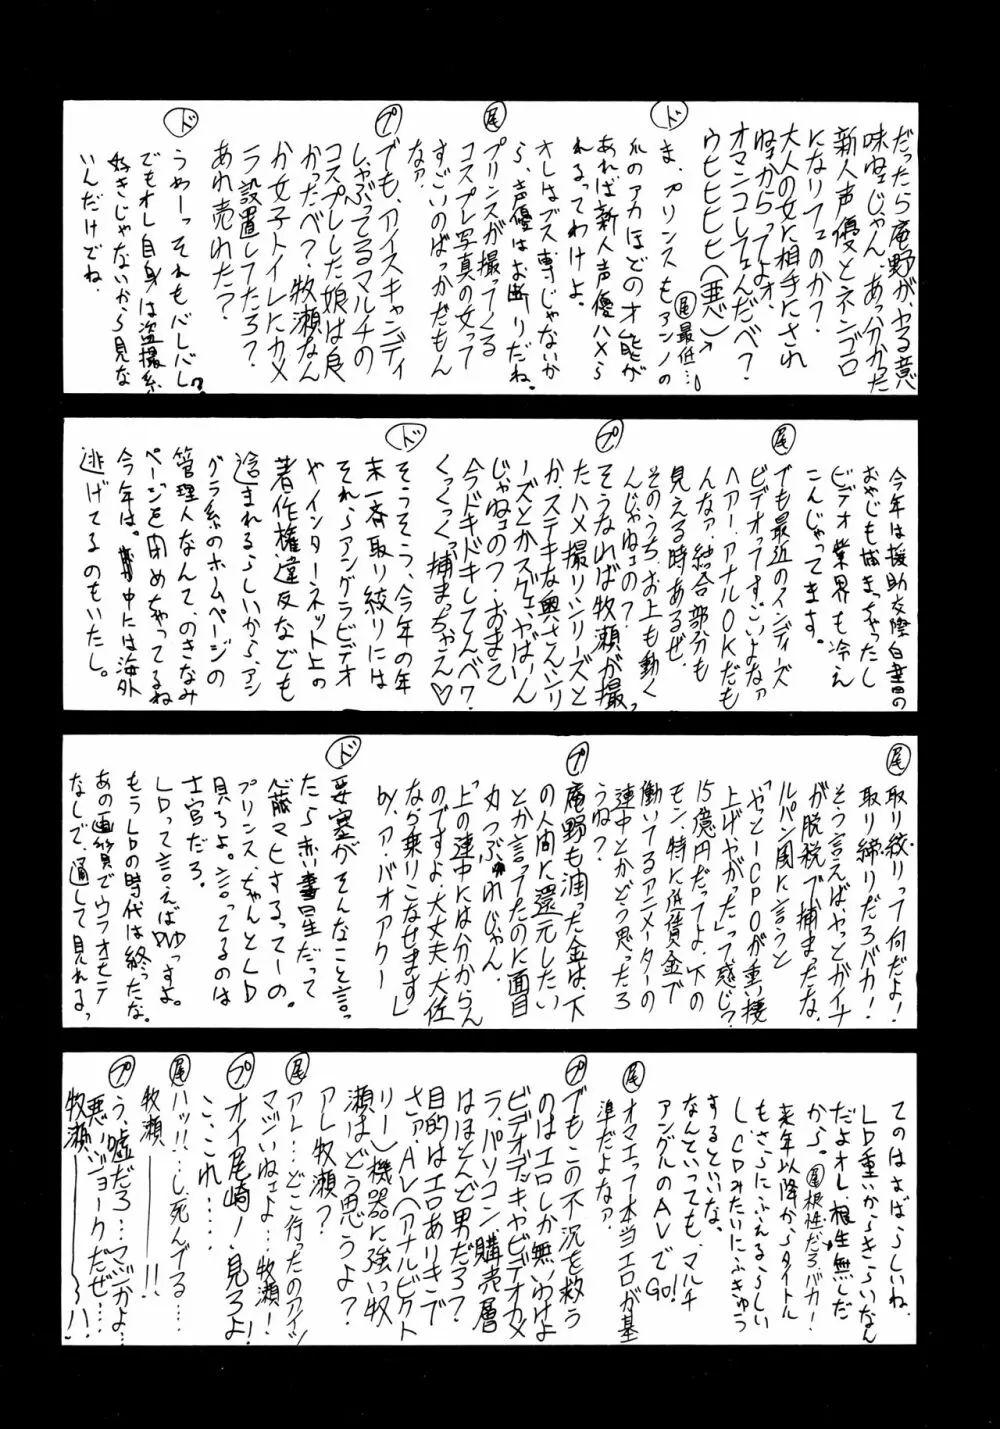 だったら庵野が、やる意
味ねェじゃん、あっかかた
新人声優とネンゴロ
になりてェのか?
大人の女に相手にされ
ねェからってよォ、
オマンコしてェんだべ?
ウヒヒヒヒヒ(悪)
尾最低…
ド
ま、プリンスもアンノの
爪のアカほどのオ能が
あれば新人声優ハメら
れるってわけよ。
オレはブス専じゃないか
ら、声優はお断りだね。
尾
プリンスが撮ってくる
コスプレ写真の女って
すごいのばっかだもん
なァ。
プ
でも、アイスキャンディ
しゃぶってるマルチの
コスプレした娘は良
かったべ?牧瀬なん
か女子トイレにカメ
ラ設置してたろ?
あれ売れた?
ド
うわーっそれもバレバレ?
でもオレ自身は盗撮系
好きじゃないから見な
いんだけどね。
今年は援助交際白書の
おやじも捕まっちゃったし
ビデオ業界も冷え
こんじゃってます。
尾
でも最近のインディーズ
ビデオってすごいよなァ
ヘアー・アナルOKだも
んなァ、結合部分も
見える時あるぜ、
そのうち、お上も動く
んじゃねェの?
プ
そうなれば牧瀬が撮っ
たハメ撮りシリーズと
か、ステキな奥さんシリ
ーズとかスゲェ、やばいん
じゃねェのフ・おまえ
今ドキドキしてんべ?
くっくっくっ捕まっちゃえ♡
ド
そうそう、今年の年
末一斉取り絞りには
それらアングラビデオ
やインターネット上の
著作権違反なども
込まれるらしいから、アン
グラ系のホームページの
管理人なんて、のきなみ
ページを閉めちゃってるね
今年は。中には海外
逃げてるのもいたし。
尾
取り絞りって何だよ!
取り締りだろバカ!
そう言えば、やっとガイナ
が脱税で捕まったな、
ルパン風に言うと
「やっとICPOが重い腰
上げやがった」って感じ?
15億円だってよ、下の
モン、特に低賃金で
働いてるアニメーターの
連中とかどう思ったろ
うね?
プ
庵野も浦った金は、下
の人間に還元したい
とか言ってたのに面目
丸つぶれじゃん。
「上の連中にはわからん
のですよ、大丈夫大佐
なら乗りこなせます」
by、ア・バオアクー
ド
要塞がそんなこと言っ
たら赤い彗星だって
心臓マヒするってーの。
プリンス、ちゃんとLD
見ろよ。言ってるのは
士官だろ。
LDって言えばDVDっすよ。
もうLDの時代は終ったな。
あの画質でウラオモテ
なしで、通して見れるっ
てのはすばらしいね、
LD重いからきらいなん
だよオレ、根性無しだ
から。尾根性だろ、バカ!
来年以降からタイトル
もさらにふえるらしい
し、CDみたいにふきゅう
するといいな。
なんといっても、マルチ
アングルのAVでGO!
尾
オマエって本当エロが基
準だよなァ。
プ
でもこの不況を救う
のはエロしか無いわけよ
ビデオデッキ、やビデオカメ
ラ、パソコン、購売層
はほとんど男だろ?
目的はエロありきで
さァ、AV(アナルビクト
リー)機器に強い牧
瀬はどう思うよ?
アレ牧瀬?
尾
アレ…どこ行ったのアイツ
マジいねェよ…牧瀬!
プ
オイ尾崎!見ろよ!
こ、これ……
尾
ハッ!!…し、死んでる…
牧瀬――――!!
プ
う、嘘だろ…マジかよ…
悪いジョークだぜ…
牧瀬―――〜ハ!